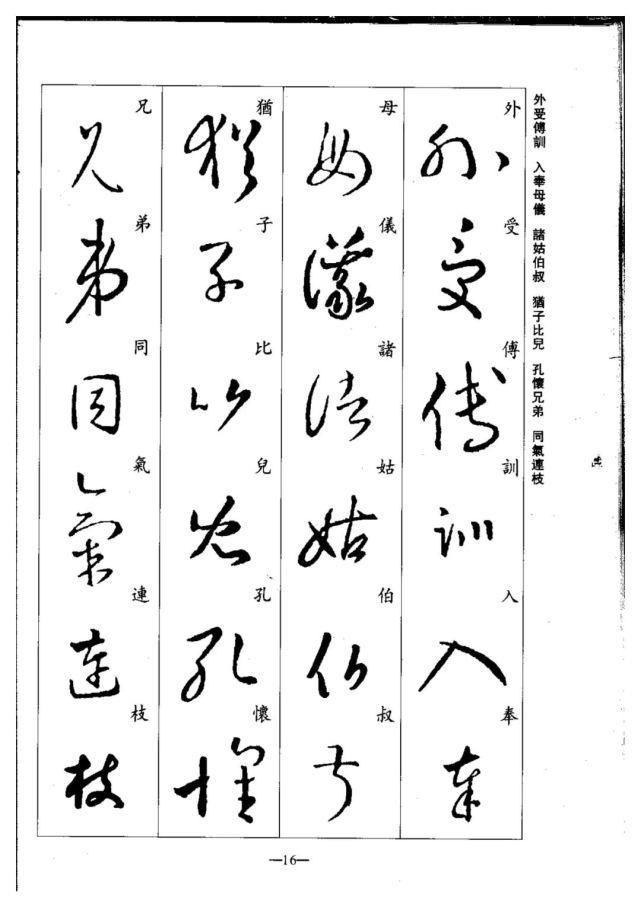 外受傅訓 入奉母儀 諸姑伯叔 猶子比兒 孔懷兄弟 同氣連枝
外受傅訓入奉
母儀諸姑伯叔
猶子比兒孔懷
兄弟同氣連枝
—16—